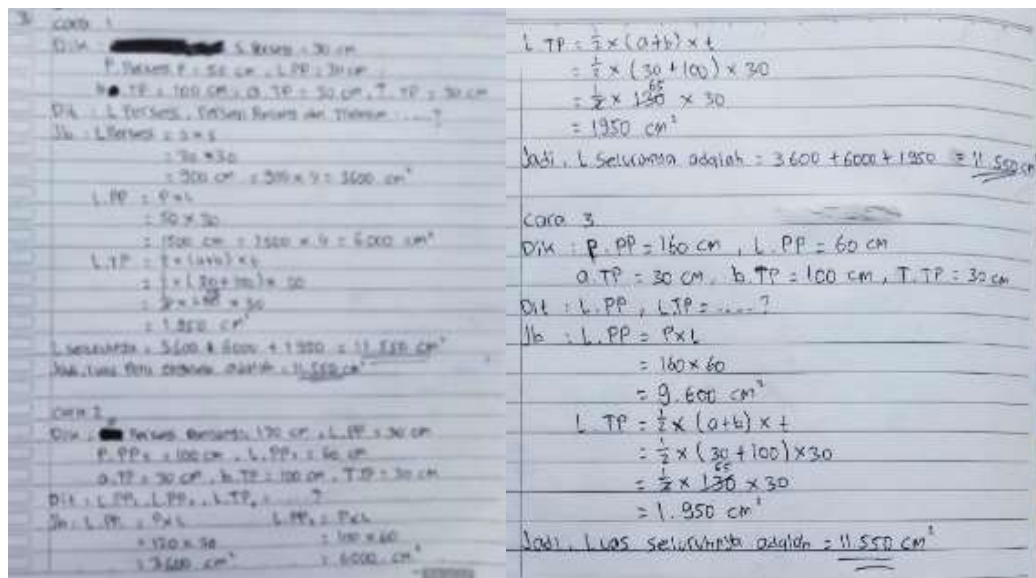 3. Cara 1
Dik : S. Persegi = 30 cm
P. Persegi P = 50 cm, L.PP = 30 cm
b. TP = 100 cm, a. TP = 30 cm, T. TP = 30 cm
Dit : L Persegi, Persegi Panjang dan Trapesium ....?
Jb : L Persegi = s x s
= 30 x 30
= 900 cm = 900 x 4 = 3600 cm²
L.PP = P x L
= 50 x 30
= 1500 cm = 1500 x 4 = 6000 cm²
L.TP = ½ x (a+b) x t
= ½ x (30 + 100) x 30
= ½ x 130 x 30
= 1.950 cm²
L seluruhnya = 3600 + 6000 + 1950 = 11.550 cm²
Jadi, Luas adalah = 11.550 cm²
Cara 2
Dik : Persegi 120 cm, L.PP = 30 cm
P.PP₂ = 100 cm, L.PP₂ = 60 cm
a.TP = 30 cm, b.TP = 100 cm, T.TP = 30 cm
Dit : L.PP₁, L.PP₂, L.TP, ....?
Jb : L.PP₁ = P x L
= 120 x 30
= 3600 cm²
L.PP₂ = P x L
= 100 x 60
= 6000 cm²
L TP = ½ x (a+b) x t
= ½ x (30 + 100) x 30
= ½ x 130 65 x 30
= 1950 cm²
Jadi, L seluruhnya adalah = 3600 + 6000 + 1950 = 11.550 cm
Cara 3
Dik : P.PP = 160 cm, L.PP = 60 cm
a.TP = 30 cm, b.TP = 100 cm, T.TP = 30 cm
Dit : L.PP, L TP = ....?
Jb : L.PP = P x L
= 160 x 60
= 9.600 cm²
L TP = ½ x (a+b) x t
= ½ x (30 + 100) x 30
= ½ x 130 65 x 30
= 1.950 cm²
Jadi, Luas seluruhnya adalah = 11 550 cm²